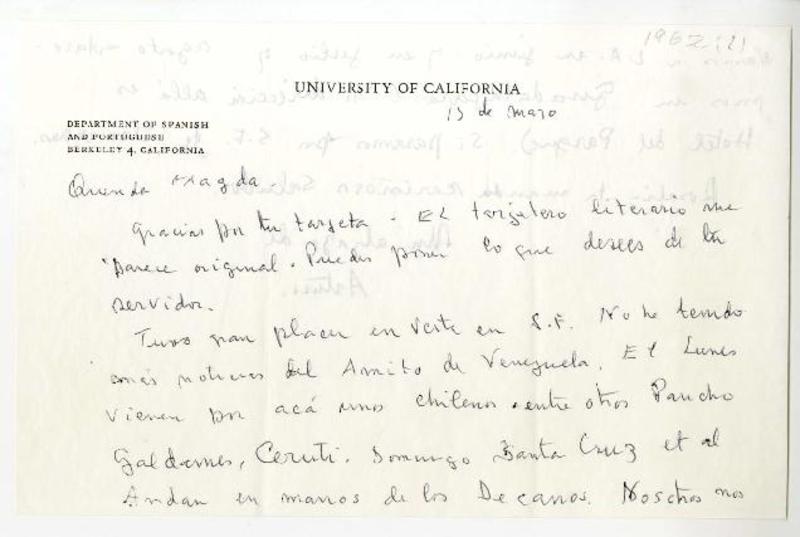 1962 (?)
UNIVERSITY OF CALIFORNIA
15 de marzo
DEPARTMENT OF SPANISH
AND PORTUGUESE
BERKELEY 4, CALIFORNIA
Querida Magda.
Gracias por tu tarjeta. El tarjetero literario me
parece original. Puedes poner lo que desees de tu
servidor.
Tuve gran placer en verte en S.F. No he tenido
más noticias del Amito de Venezuela. El Lunes
vienen por acá unos chilenos entre otros Pancho
Galdames, Ceruti. Domingo Santa Cruz et al
Andan en manos de los Decanos. Nosotros nos